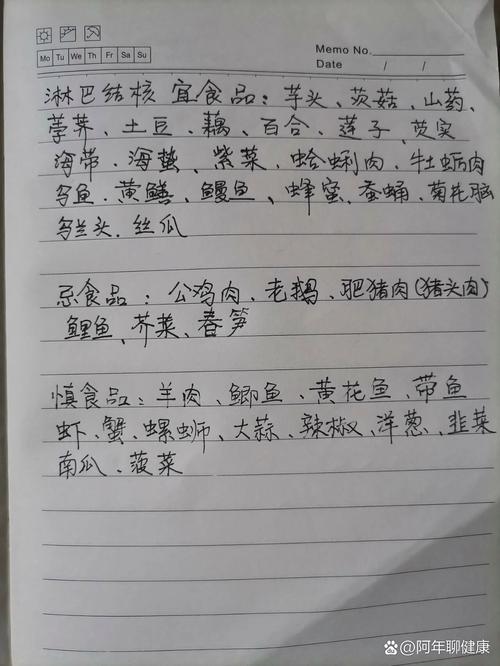 Memo No.
Mo Tu We Th Fr Sa Su
Date / /
淋巴结核 宜食品：芋头、茨菇、山药、
荸荠、土豆、藕、百合、莲子、芡实
海带、海蜇、紫菜、蛤蜊肉、牡蛎肉
乌鱼、黄鳝、鳗鱼、蜂蜜、蚕蛹、菊花脑
乌兰头、丝瓜
忌食品：公鸡肉、老鹅、肥猪肉(猪头肉)
鲤鱼、芥菜、春笋
慎食品：羊肉、鲫鱼、黄花鱼、带鱼
虾、蟹、螺蛳、大蒜、辣椒、洋葱、韭菜
南瓜、菠菜
@阿年聊健康